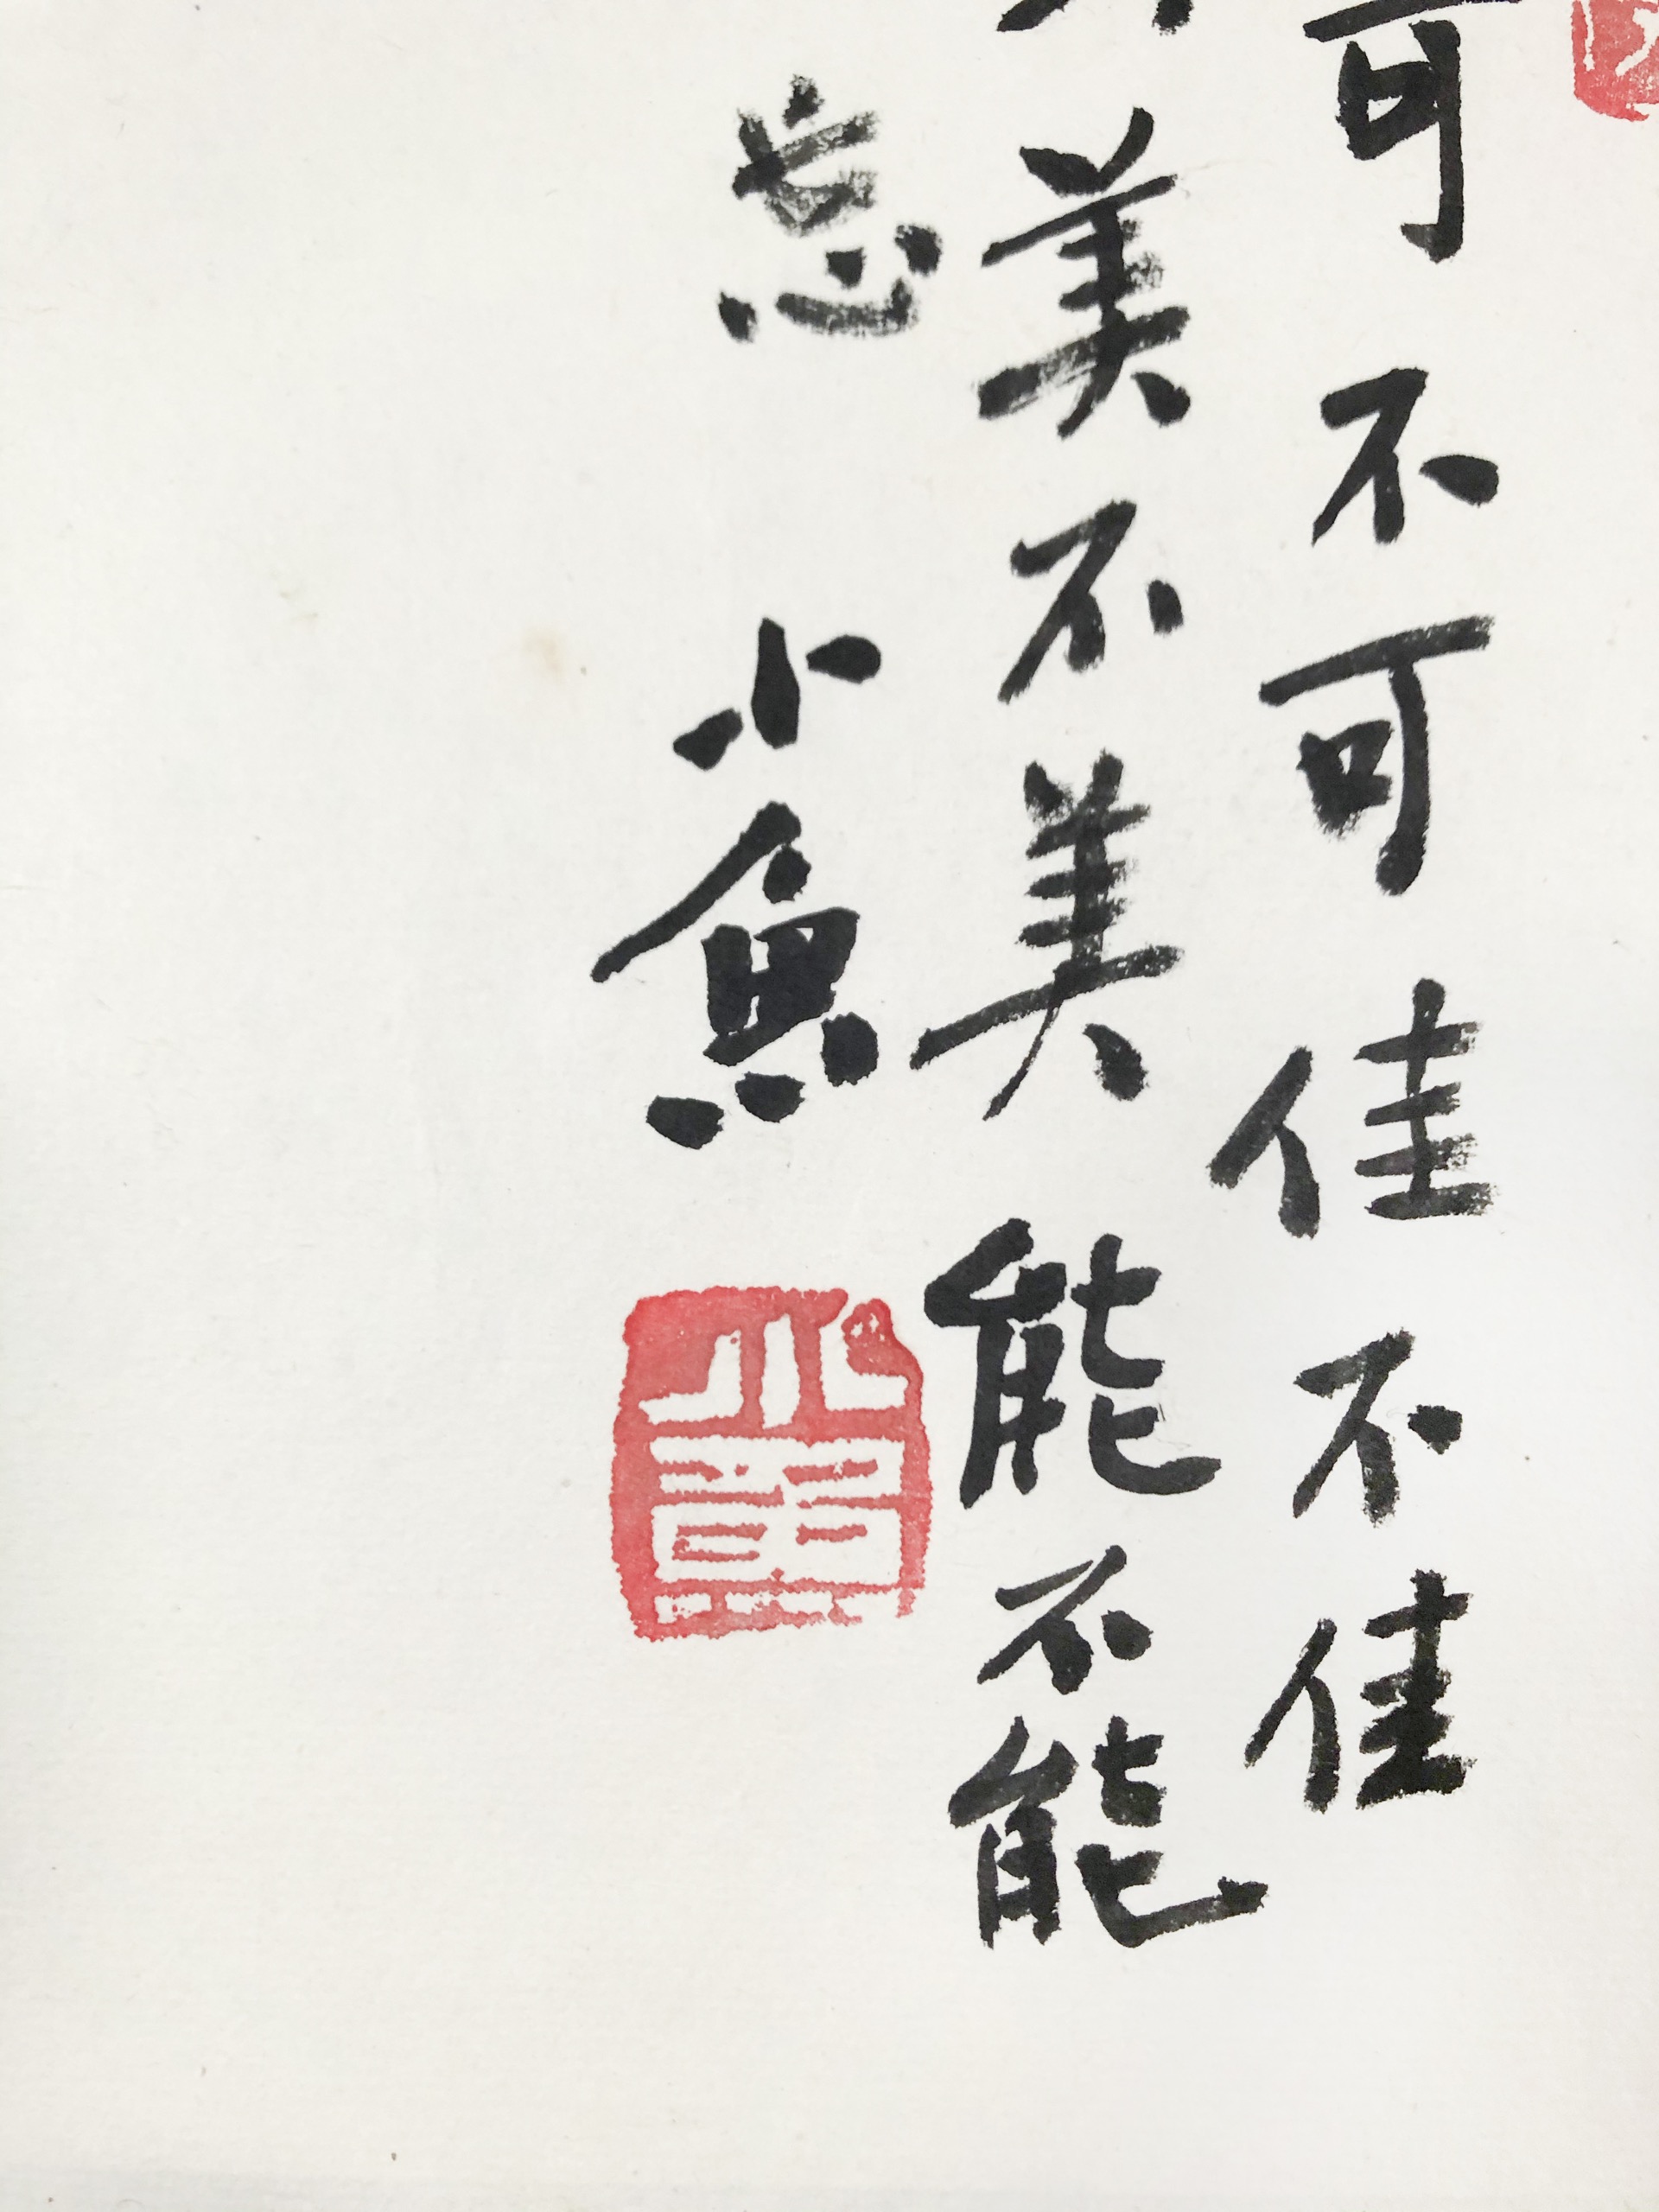 可不可佳不佳
美不美能不能
忘
小魚